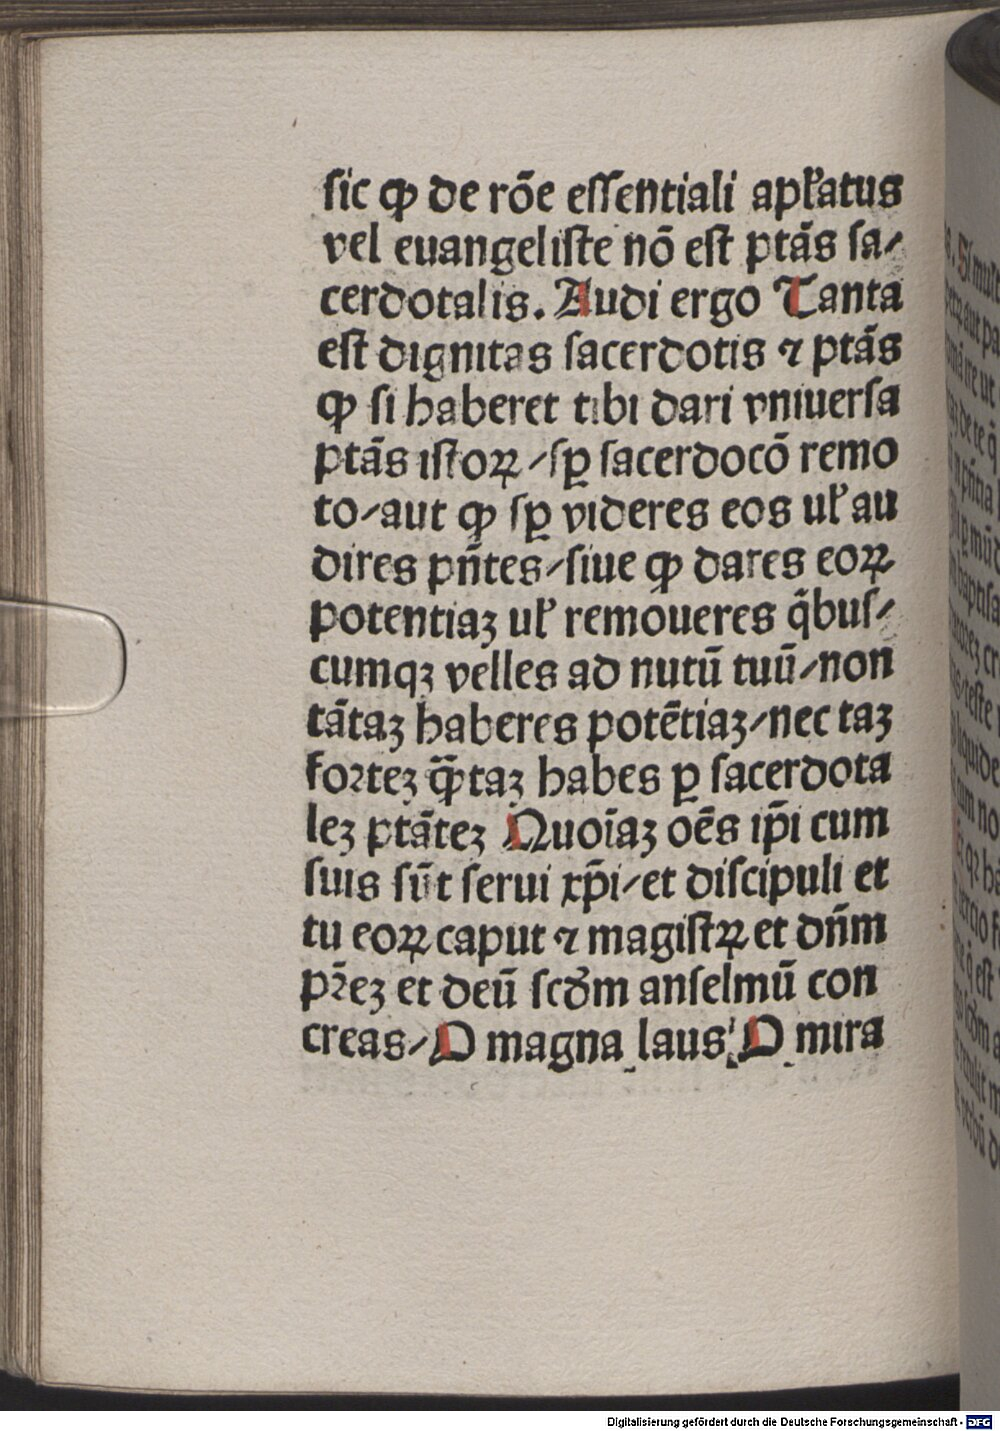 sic ꝙ de rōe essentiali apl̓atus
vel euangeliste nō est ptās sa⸗
cerdotalis. Audi ergo Tanta
est dignitas sacerdotis ⁊ ptās
ꝙ si haberet tibi dari vniuersa
ptās istoꝝ/sꝑ sacerdocō remo
to/aut ꝙ sꝑ videres eos ul̓ au
dires pn̄tes/siue ꝙ dares eoꝝ
potentiaꝫ ul̓ remoueres q̄bus/
cumqꝫ velles ad nutū tuū/non
tātaꝫ haberes potētiaꝫ/nec taꝫ
forteꝫ ꝙ̄taꝫ habes ꝑ sacerdota
leꝫ ptāteꝫ Quoīaꝫ oēs ip̄i cum
suis sūt serui xp̄i/et discipuli et
tu eoꝝ caput ⁊ magistꝝ et dn̄m
pr̄eꝫ et deū scd̄m anselmū con
creas/O magna laus' O mira
Digitalisierung gefördert durch die Deutsche Forschungsgemeinschaft - DFG